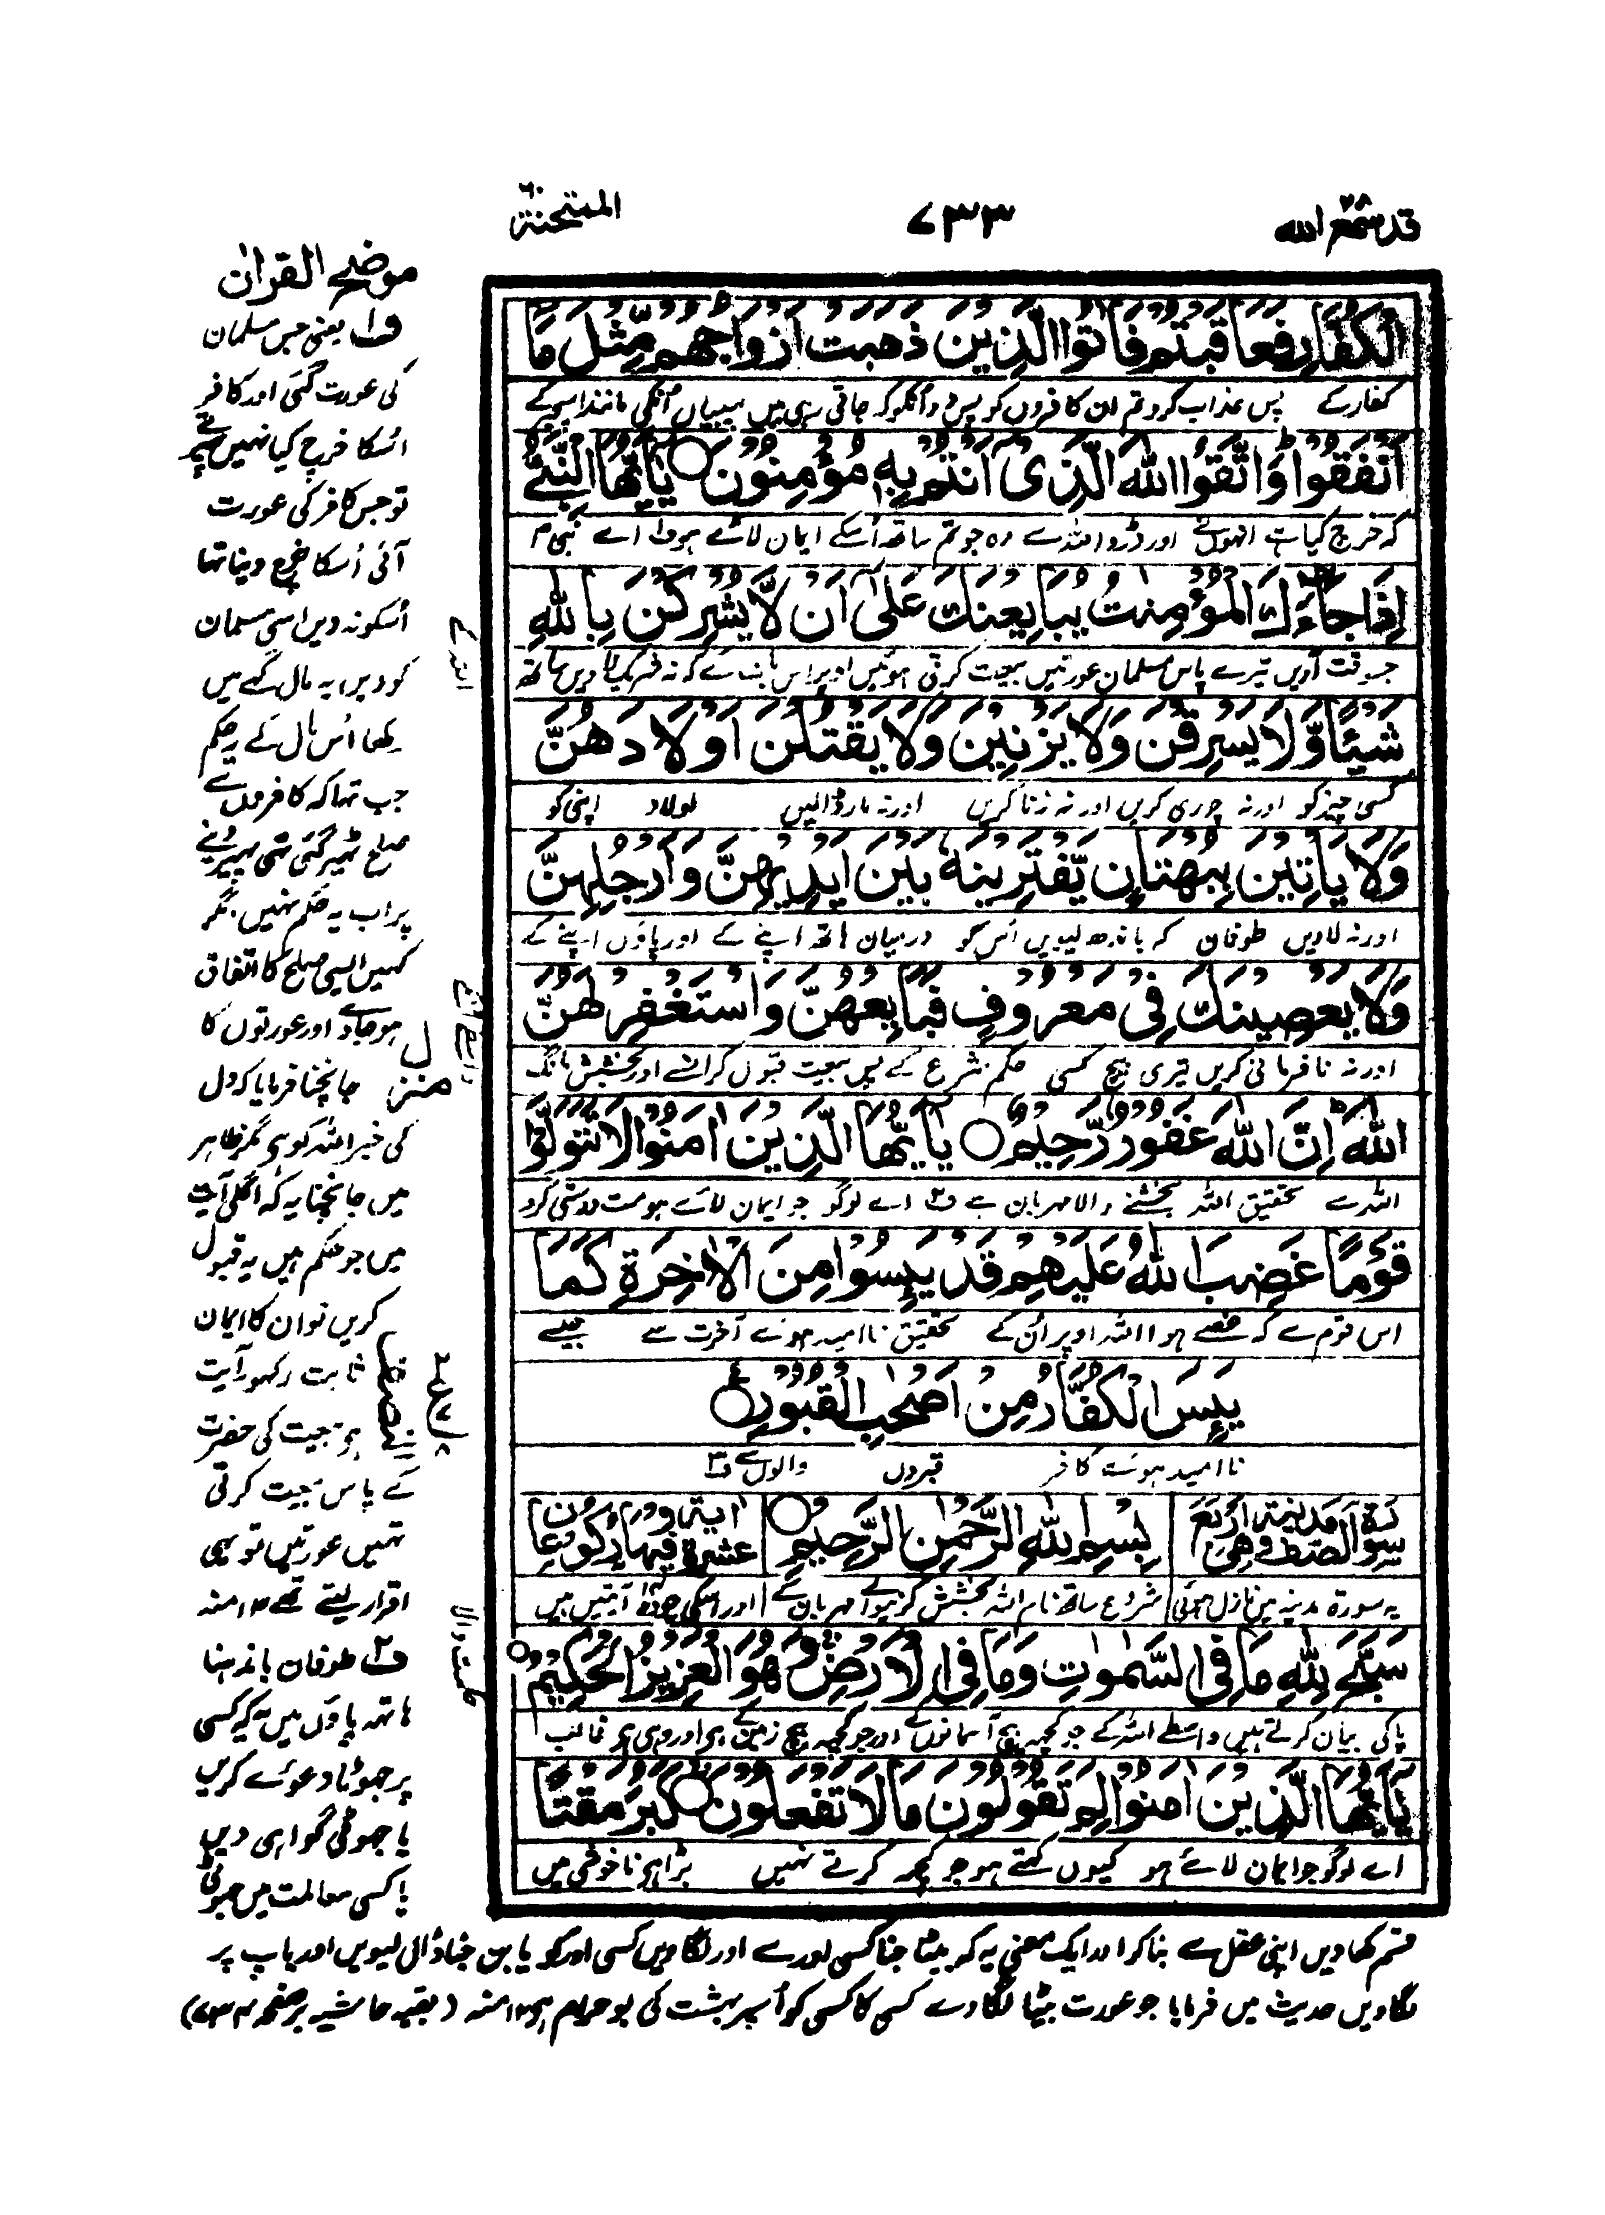 قد سمع الله ٢٨
٧٣٣
الممتحنة ٦٠
الْكُفَّارِ فَعَاقَبْتُمْ فَاٰتُوا الَّذِيْنَ ذَهَبَتْ اَزْوَاجُهُمْ مِّثْلَ مَاۤ
کفار کے پس عذاب کرو تم ان کافروں کو پس دو اُنکو کہ جاتی رہی ہیں بیبیاں اُنکی مانند اسچیز کے
اَنْفَقُوْا وَاتَّقُوا اللّٰهَ الَّذِىْۤ اَنْتُمْ بِهٖ مُؤْمِنُوْنَ ○ يٰۤاَيُّهَا النَّبِىُّ
کہ خرچ کیا ہے انہوں نے اور ڈرو اللہ سے وہ جو تم ساتھ اُسکے ایمان لائے ہو ف۱ اے نبی
اِذَا جَآءَكَ الْمُؤْمِنٰتُ يُبَايِعْنَكَ عَلٰۤى اَنْ لَّا يُشْرِكْنَ بِاللّٰهِ
جسوقت آویں تیرے پاس مسلمان عورتیں بیعت کرتی ہوئیں اوپر اس بات کے کہ نہ شریک لاویں ساتھ
اللہ کے
شَيْئًا وَّلَا يَسْرِقْنَ وَلَا يَزْنِيْنَ وَلَا يَقْتُلْنَ اَوْلَادَهُنَّ
کسی چیز کو اور نہ چوری کریں اور نہ زنا کریں اور نہ مار ڈالیں اولاد اپنی کو
وَلَا يَاْتِيْنَ بِبُهْتَانٍ يَّفْتَرِيْنَهٗ بَيْنَ اَيْدِيْهِنَّ وَاَرْجُلِهِنَّ
اور نہ لاویں طوفان کہ باندھ لیویں اُس کو درمیان ہاتھ اپنے کے اور پاؤں اپنے کے
وَلَا يَعْصِيْنَكَ فِىْ مَعْرُوْفٍ فَبَايِعْهُنَّ وَاسْتَغْفِرْ لَهُنَّ
اور نہ نافرمانی کریں تیری بیچ کسی حکم شرع کے پس بیعت قبول کر انسے اور بخشش مانگ
واسطے انکے
اللّٰهَ اِنَّ اللّٰهَ غَفُوْرٌ رَّحِيْمٌ ○ يٰۤاَيُّهَا الَّذِيْنَ اٰمَنُوْا لَا تَتَوَلَّوْا
اللہ سے تحقیق اللہ بخشنے والا مہربان ہے ف۲ اے لوگو جو ایمان لائے ہو مت دوستی کرو
قَوْمًا غَضِبَ اللّٰهُ عَلَيْهِمْ قَدْ يَئِسُوْا مِنَ الْاٰخِرَةِ كَمَا
اس قوم سے کہ غصے ہوا اللہ اوپر اُن کے تحقیق ناامید ہوئے آخرت سے جیسے
يَئِسَ الْكُفَّارُ مِنْ اَصْحٰبِ الْقُبُوْرِ ○
ناامید ہوئے کافر قبروں والوں سے ف۳
سورة الصف مدنية وهى اربع
بِسْمِ اللّٰهِ الرَّحْمٰنِ الرَّحِيْمِ ○
عشرة اية وفيها ركوعان
یہ سورۃ مدینہ میں نازل ہوئی
شروع ساتھ نام اللہ بخشش کرنیوالے مہربان کے
اور اسکی چودہ آیتیں ہیں
سَبَّحَ لِلّٰهِ مَا فِى السَّمٰوٰتِ وَمَا فِى الْاَرْضِ وَهُوَ الْعَزِيْزُ الْحَكِيْمُ ○
پاکی بیان کرتے ہیں واسطے اللہ کے جو کچھ بیچ آسمانوں کے اور جو کچھ بیچ زمین کے ہی اور وہی ہی غالب
حکمت والا
يٰۤاَيُّهَا الَّذِيْنَ اٰمَنُوْا لِمَ تَقُوْلُوْنَ مَا لَا تَفْعَلُوْنَ ○ كَبُرَ مَقْتًا
اے لوگو جو ایمان لائے ہو کیوں کہتے ہو جو کچھ کرتے نہیں بڑا ہی ناخوشی میں
موضح القران
ف۱ یعنی جس مسلمان
کی عورت گئی اور کافر
اُسکا خرچ کیا نہیں پھیرتے
تو جس کافر کی عورت
آئی اُسکا خرچ دینا تھا
اُسکو نہ دیں اسی مسلمان
کو دیں یہ مال کہے میں
رکھا اُس مال کے یہ حکم
جب تھا کہ کافروں سے
صلح ٹھیر گئی تھی پھیر دینے
پر اب یہ حکم نہیں مگر
کہیں ایسی صلح کا اتفاق
ہو جاوے اور عورتوں کا
جانچنا فرمایا کہ دل
منزل
کی خبر اللہ کو ہی مگر ظاہر
میں جانچنا یہ کہ اگلی آیت
میں جو حکم ہیں یہ قبول
کریں تو ان کا ایمان
ثابت رکھو یہ آیت
ہی بیعت کی حضرت
کے پاس بیعت کرتی
تھیں عورتیں تو یہی
اقرار لیتے تھے ۱۲ منہ
ف۲ طوفان باندھنا
ہاتھ پاؤں میں یہ کہ کسی
پر جھوٹا دعوے کریں
یا جھوٹی گواہی دیں
یا کسی معاملت میں جھوٹی
قسم کھاویں اپنی عقل سے بنا کر اور ایک معنی یہ کہ بیٹا جنا کسی اور سے اور لگا دیں کسی اور کو یا بن جنا ڈال لیویں اور باپ پر
لگاویں حدیث میں فرمایا جو عورت بیٹا لگا دے کسی کا کسی کو اُسپر بہشت کی بو حرام ہی ۱۲ منہ (بقیہ حاشیہ بر صفحہ ۷۳۴)